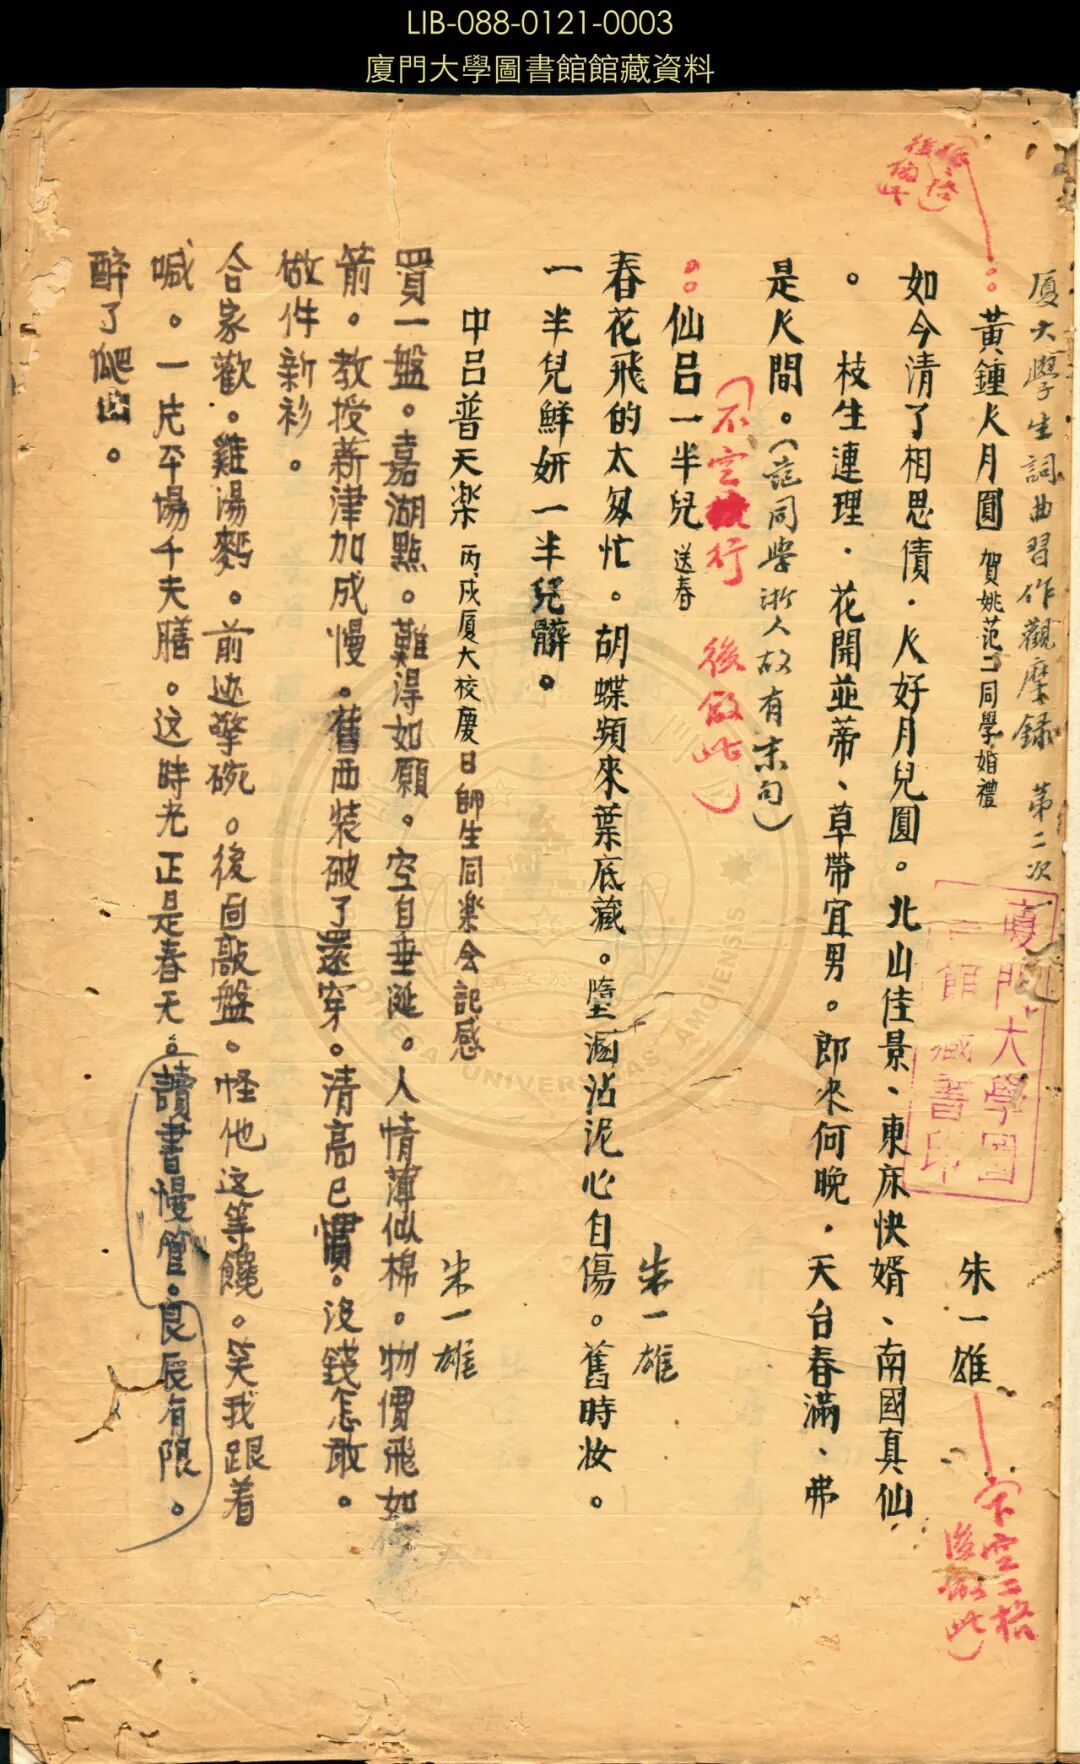 LIB-088-0121-0003
廈門大學圖書館館藏資料
厦大學生詞曲習作觀摩錄 第二次
黃鍾人月圓 賀姚范二同學婚禮 朱一雄
如今清了相思債．人好月兒圓。北山佳景、東床快婿、南國真仙
。枝生連理．花開並蒂、草帶宜男。郎來何晚．天台春滿、弗
是人間。（范同學浙人故有末句）
（不空行 後倣此）
仙呂一半兒 送春 朱一雄
春花飛的太匆忙。胡蝶頻來葉底藏。墮溷沾泥心自傷。舊時妝。
一半兒鮮妍一半兒髒。
中呂普天楽 丙戍厦大校慶日師生同楽会記感 朱一雄
買一盤。嘉湖點。難得如願。空自垂涎。人情薄似棉。物價飛如
箭。教授薪津加成慢。舊西裝破了還穿。清高已慣。沒錢怎敢。
做件新衫。
合家歡。雞湯麫。前迯擎碗。後面敲盤。怪他这等饞。笑我跟着
喊。一片平場千夫膳。这時光正是春天。讀書慢管。良辰有限。
醉了爬出。
空二格
後倣此）
廈門大學圖
書館藏書印